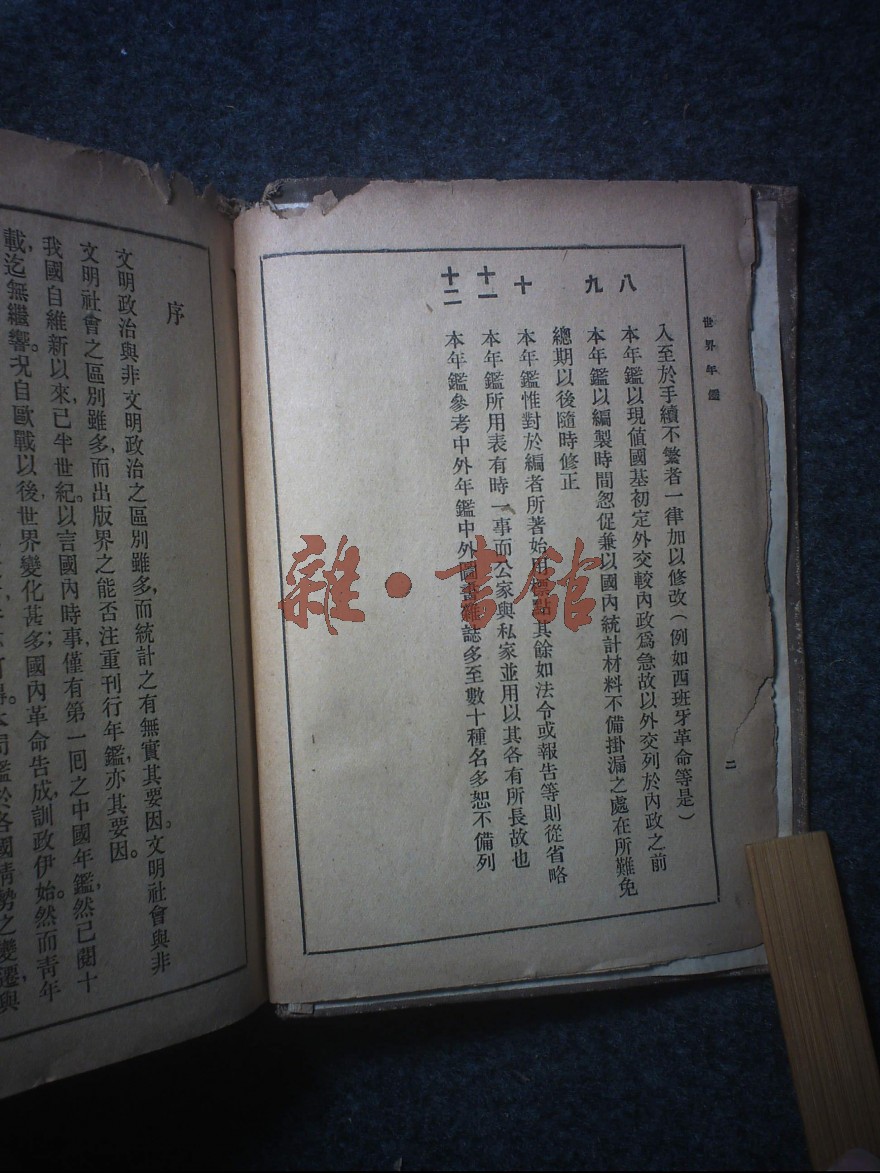 世界年鑑
二
入至於手續不繁者一律加以修改（例如西班牙革命等是）
八 本年鑑以現値國基初定外交較內政爲急故以外交列於內政之前
九 本年鑑以編製時間怱促兼以國內統計材料不備掛漏之處在所難免
總期以後隨時修正
十 本年鑑惟對於編者所著始用標點其餘如法令或報告等則從省略
十一 本年鑑所用表有時一事而公家與私家並用以其各有所長故也
十二 本年鑑參考中外年鑑中外圖書雜誌多至數十種名多恕不備列
雜·書館
序
文明政治與非文明政治之區別雖多，而統計之有無實其要因。文明社會與非
文明社會之區別雖多，而出版界之能否注重刊行年鑑，亦其要因。
我國自維新以來，已半世紀。以言國內時事，僅有第一囘之中國年鑑，然已閱十
載，迄無繼響。况自歐戰以後，世界變化甚多；國內革命告成，訓政伊始。然而靑年
鑑於各國情勢之變遷，與